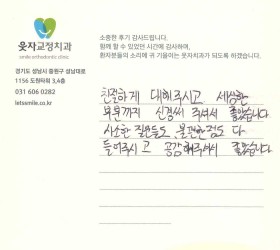 웃자교정치과
smile orthodontic clinic
경기도 성남시 중원구 성남대로
1156 도원타워 3,4층
031 606 0282
letssmile.co.kr
소중한 후기 감사드립니다.
함께 할 수 있었던 시간에 감사하며,
환자분들의 소리에 귀 기울이는 웃자치과가 되도록 하겠습니다.
친절하게 대해주시고 세심한
부분까지 신경써 주셔서 좋았습니다
사소한 질문들도, 불편한점도 다
들어주시고 공감해주셔서 좋았습니다